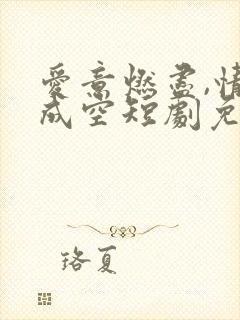 愛意燃盡,情
成空短劇免
珞夏